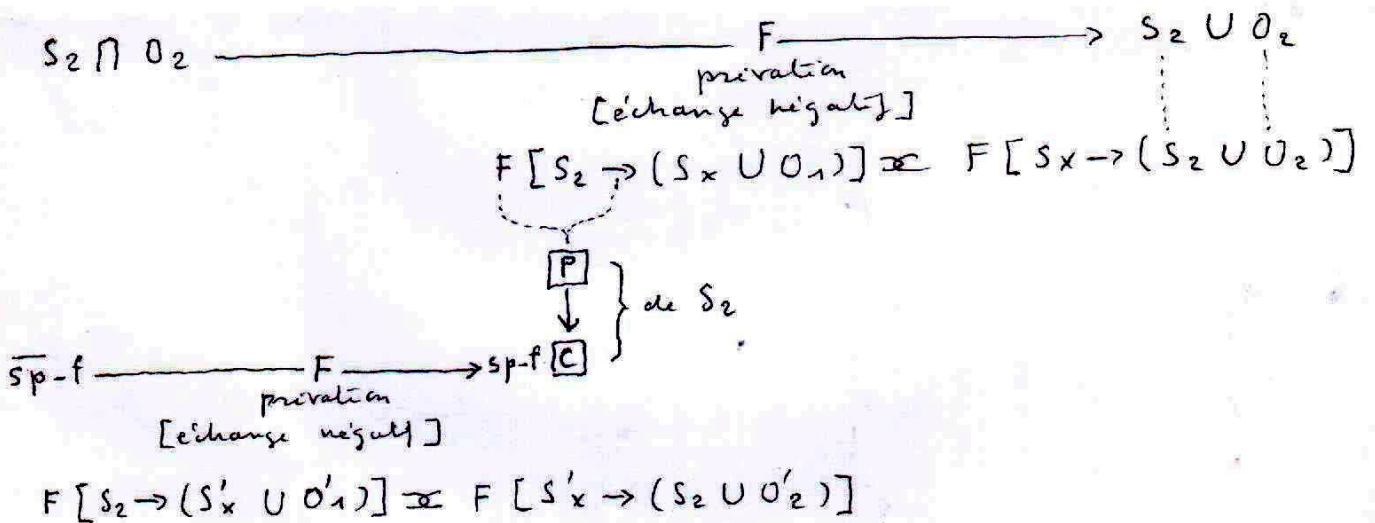 S₂ ∩ O₂ ——— F ———> S₂ U O₂
privation
[échange négatif]
F [S₂ → (Sx U O₁)] ≍ F [Sx → (S₂ U O₂)]
P
} de S₂
s̅p̅-f ——— F ———> sp-f C
privation
[échange négatif]
F [S₂ → (S'x U O'₁)] ≍ F [S'x → (S₂ U O'₂)]